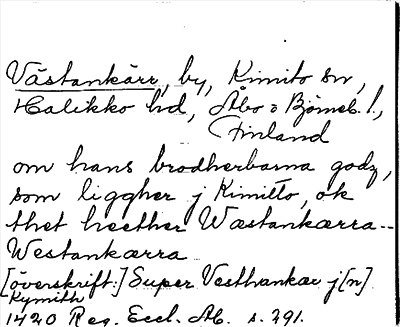 Västankärr, by, Kimito sn,
Halikko hd, Åbo o Björneb. l.,
Finland
om hans brodherbarna godz,
som liggher j Kimitto, ok
thet heether Wæstankærra--
Westankærra
[överskrift:] Super Vesthankar j[n]
Kymith
1420 Reg. Eccl. Ab. s. 291.